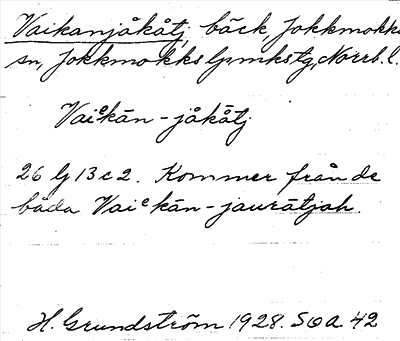 Vaikanjåkåtj bäck, Jokkmokks
sn, Jokkmokks lpmkstg, Norrb. l.
Vaiᵉkān-jåkåtj
26 lj 13 c 2. Kommer från de
båda Vaiᵉkān-jaurātjah.
H. Grundström 1928. SOA 42